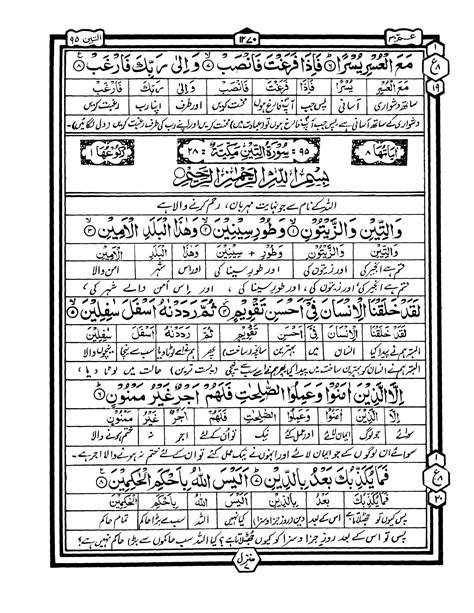 عمّ ۳۰
۱۲۷۰
التین ۹۵
مَعَ الْعُسْرِ يُسْرًا ۶ فَاِذَا فَرَغْتَ فَانْصَبْ ۷ وَاِلٰى رَبِّكَ فَارْغَبْ ۸
مَعَ الْعُسْرِ يُسْرًا فَاِذَا فَرَغْتَ فَانْصَبْ وَاِلٰى رَبِّكَ فَارْغَبْ
ساتھ دشواری آسانی پس جب آپ فارغ ہوں محنت کریں اور طرف اپنا رب رغبت کریں
دشواری کے ساتھ آسانی ہے پس جب آپ فارغ ہوں تو (عبادت میں) محنت کریں اور اپنے رب کی طرف رغبت کریں (دل لگائیں)
اٰيَاتُهَا ۸
۹۵ سُوْرَةُ التِّيْنِ مَكِّيَّةٌ ۲۸
رُكُوْعُهَا ۱
بِسْمِ اللهِ الرَّحْمٰنِ الرَّحِيْمِ
اللہ کے نام سے جو نہایت مہربان، رحم کرنے والا ہے
وَالتِّيْنِ وَالزَّيْتُوْنِ ۱ وَطُوْرِ سِيْنِيْنَ ۲ وَهٰذَا الْبَلَدِ الْاَمِيْنِ ۳
وَالتِّيْنِ وَالزَّيْتُوْنِ وَطُوْرِ + سِيْنِيْنَ وَهٰذَا الْبَلَدِ الْاَمِيْنِ
قسم ہے انجیر کی اور زیتون کی اور طور سینا کی اور اس شہر امن والا
قسم ہے انجیر کی اور زیتون کی، اور طور سینا کی، اور اس امن والے شہر کی،
لَقَدْ خَلَقْنَا الْاِنْسَانَ فِيْٓ اَحْسَنِ تَقْوِيْمٍ ۴ ثُمَّ رَدَدْنٰهُ اَسْفَلَ سٰفِلِيْنَ ۵
لَقَدْ خَلَقْنَا الْاِنْسَانَ فِيْٓ اَحْسَنِ تَقْوِيْمٍ ثُمَّ رَدَدْنٰهُ اَسْفَلَ سٰفِلِيْنَ
البتہ ہم نے پیدا کیا انسان میں بہترین سانچہ (ساخت) پھر ہم نے اسے لوٹا دیا سب سے نیچا نیچوں والا
البتہ ہم نے انسان کو بہترین ساخت میں پیدا کیا پھر ہم نے اسے سب سے نیچی (پست ترین) حالت میں لوٹا دیا
اِلَّا الَّذِيْنَ اٰمَنُوْا وَعَمِلُوا الصّٰلِحٰتِ فَلَهُمْ اَجْرٌ غَيْرُ مَمْنُوْنٍ ۶
اِلَّا الَّذِيْنَ اٰمَنُوْا وَعَمِلُوا الصّٰلِحٰتِ فَلَهُمْ اَجْرٌ غَيْرُ مَمْنُوْنٍ
سوائے جو لوگ ایمان لائے اور عمل کئے نیک تو ان کے لئے اجر نہ ختم ہونے والا
سوائے ان لوگوں کے جو ایمان لائے اور انہوں نے نیک عمل کئے تو ان کے لئے ختم نہ ہونے والا اجر ہے۔
فَمَا يُكَذِّبُكَ بَعْدُ بِالدِّيْنِ ۷ اَلَيْسَ اللهُ بِاَحْكَمِ الْحٰكِمِيْنَ ۸
فَمَا يُكَذِّبُكَ بَعْدُ بِالدِّيْنِ اَلَيْسَ اللهُ بِاَحْكَمِ الْحٰكِمِيْنَ
پس کیوں تو جھٹلاتا ہے اس کے بعد دین (روز جزا و سزا) کیا نہیں اللہ سب سے بڑا حاکم تمام حاکم
پس تو اس کے بعد روز جزا و سزا کو کیوں جھٹلاتا ہے؟ کیا اللہ سب حاکموں سے بڑا حاکم نہیں ہے؟
منزل ۷